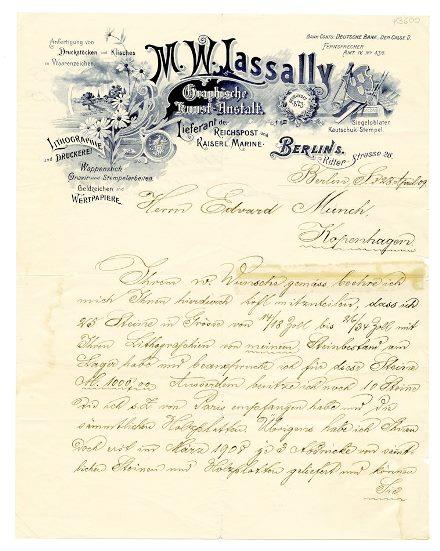 K3600
Anfertigung von
Druckstöcken und Klischees
zu Warenzeichen.
Bank-Conto: Deutsche Bank, Dep. Casse D.
Fernsprecher
Amt IV. No 435.
M. W. Lassally
Graphische
Kunst-Anstalt.
Lieferant der
Reichspost und
Kaiserl. Marine.
Siegeloblaten
Kautschuk-Stempel.
Lithographie
und Druckerei
Wappenstich
Gravir- und Stempelarbeiten.
Geldzeichen und
Wertpapiere.
Berlin S.
Ritter Strasse 28.
Berlin, d. 28. April 09
Herrn Edvard Munch,
Kopenhagen
Ihrem w. Wunsche gemäss beehre ich
mich Ihnen hierdurch höfl. mitzuteilen, dass ich
25 Steine in Grössen von 14/18 Zoll bis 26/34 Zoll, mit
Ihren Lithographien von meinem Steinbestand am
Lager habe und beanspruche ich für diese Steine
M. 1000,00. Ausserdem besitze ich noch 10 Steine
die ich s.Z. von Paris empfangen habe und die
sämmtlichen Holzplatten. Übrigens habe ich Ihnen
doch erst im März 1908 je 3 Abdrücke von sämt-
lichen Steinen und Holzplatten geliefert und können
Sie